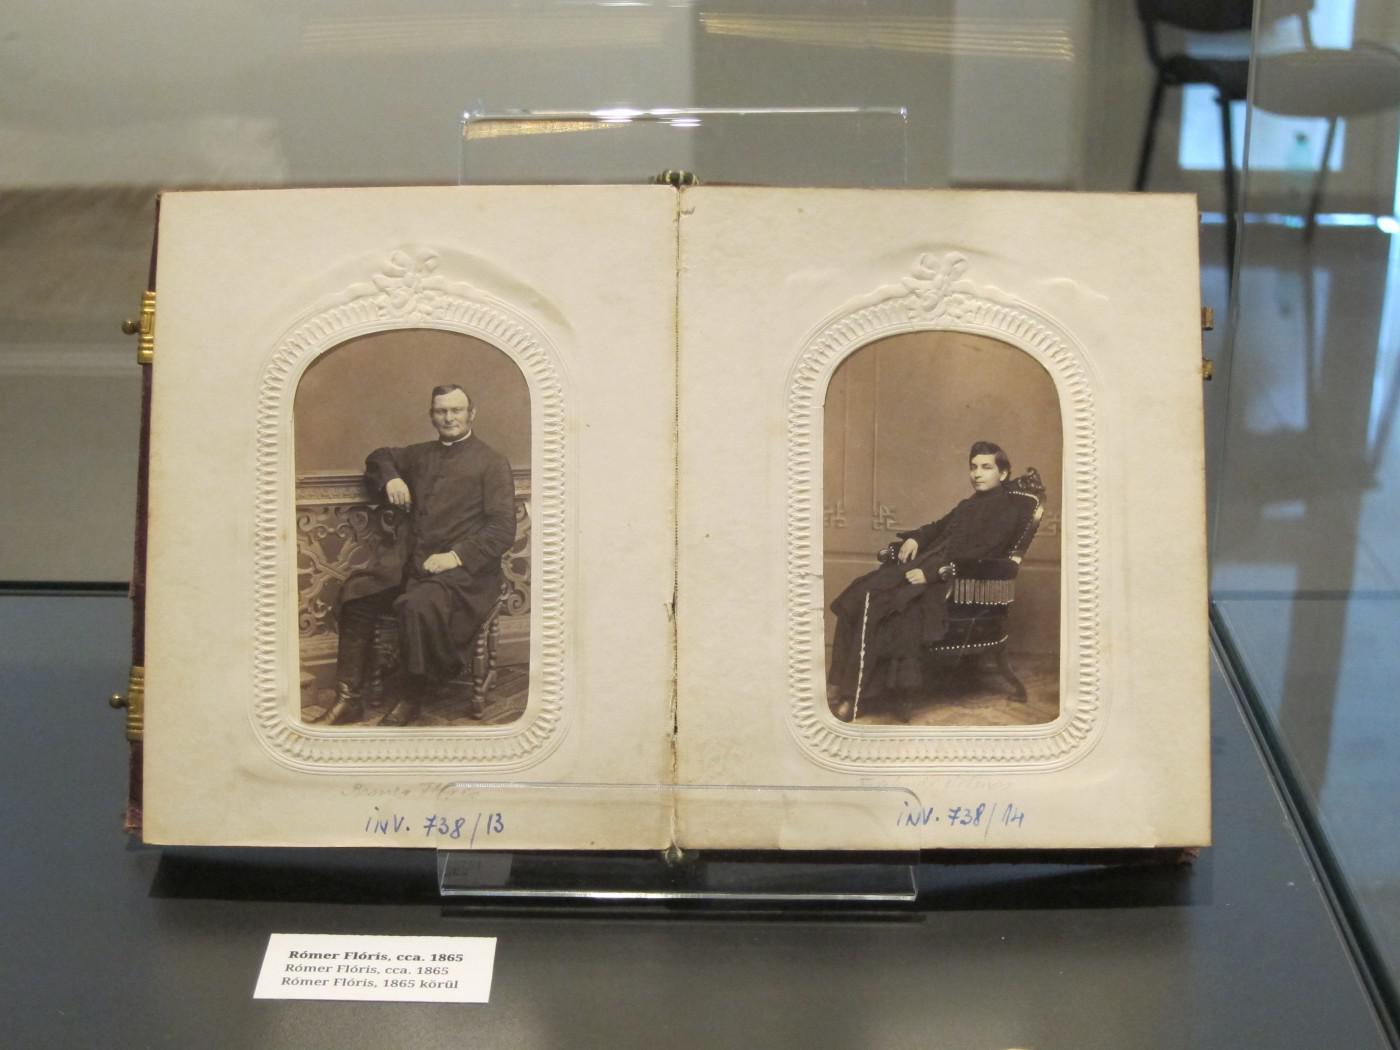 INV. 738/13
INV. 738/14
Rómer Flóris, cca. 1865
Rómer Flóris, cca. 1865
Rómer Flóris, 1865 körül